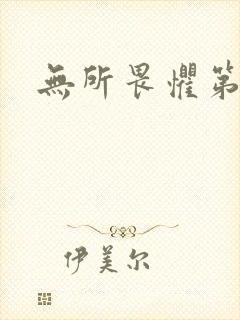 無所畏懼第
伊美尔